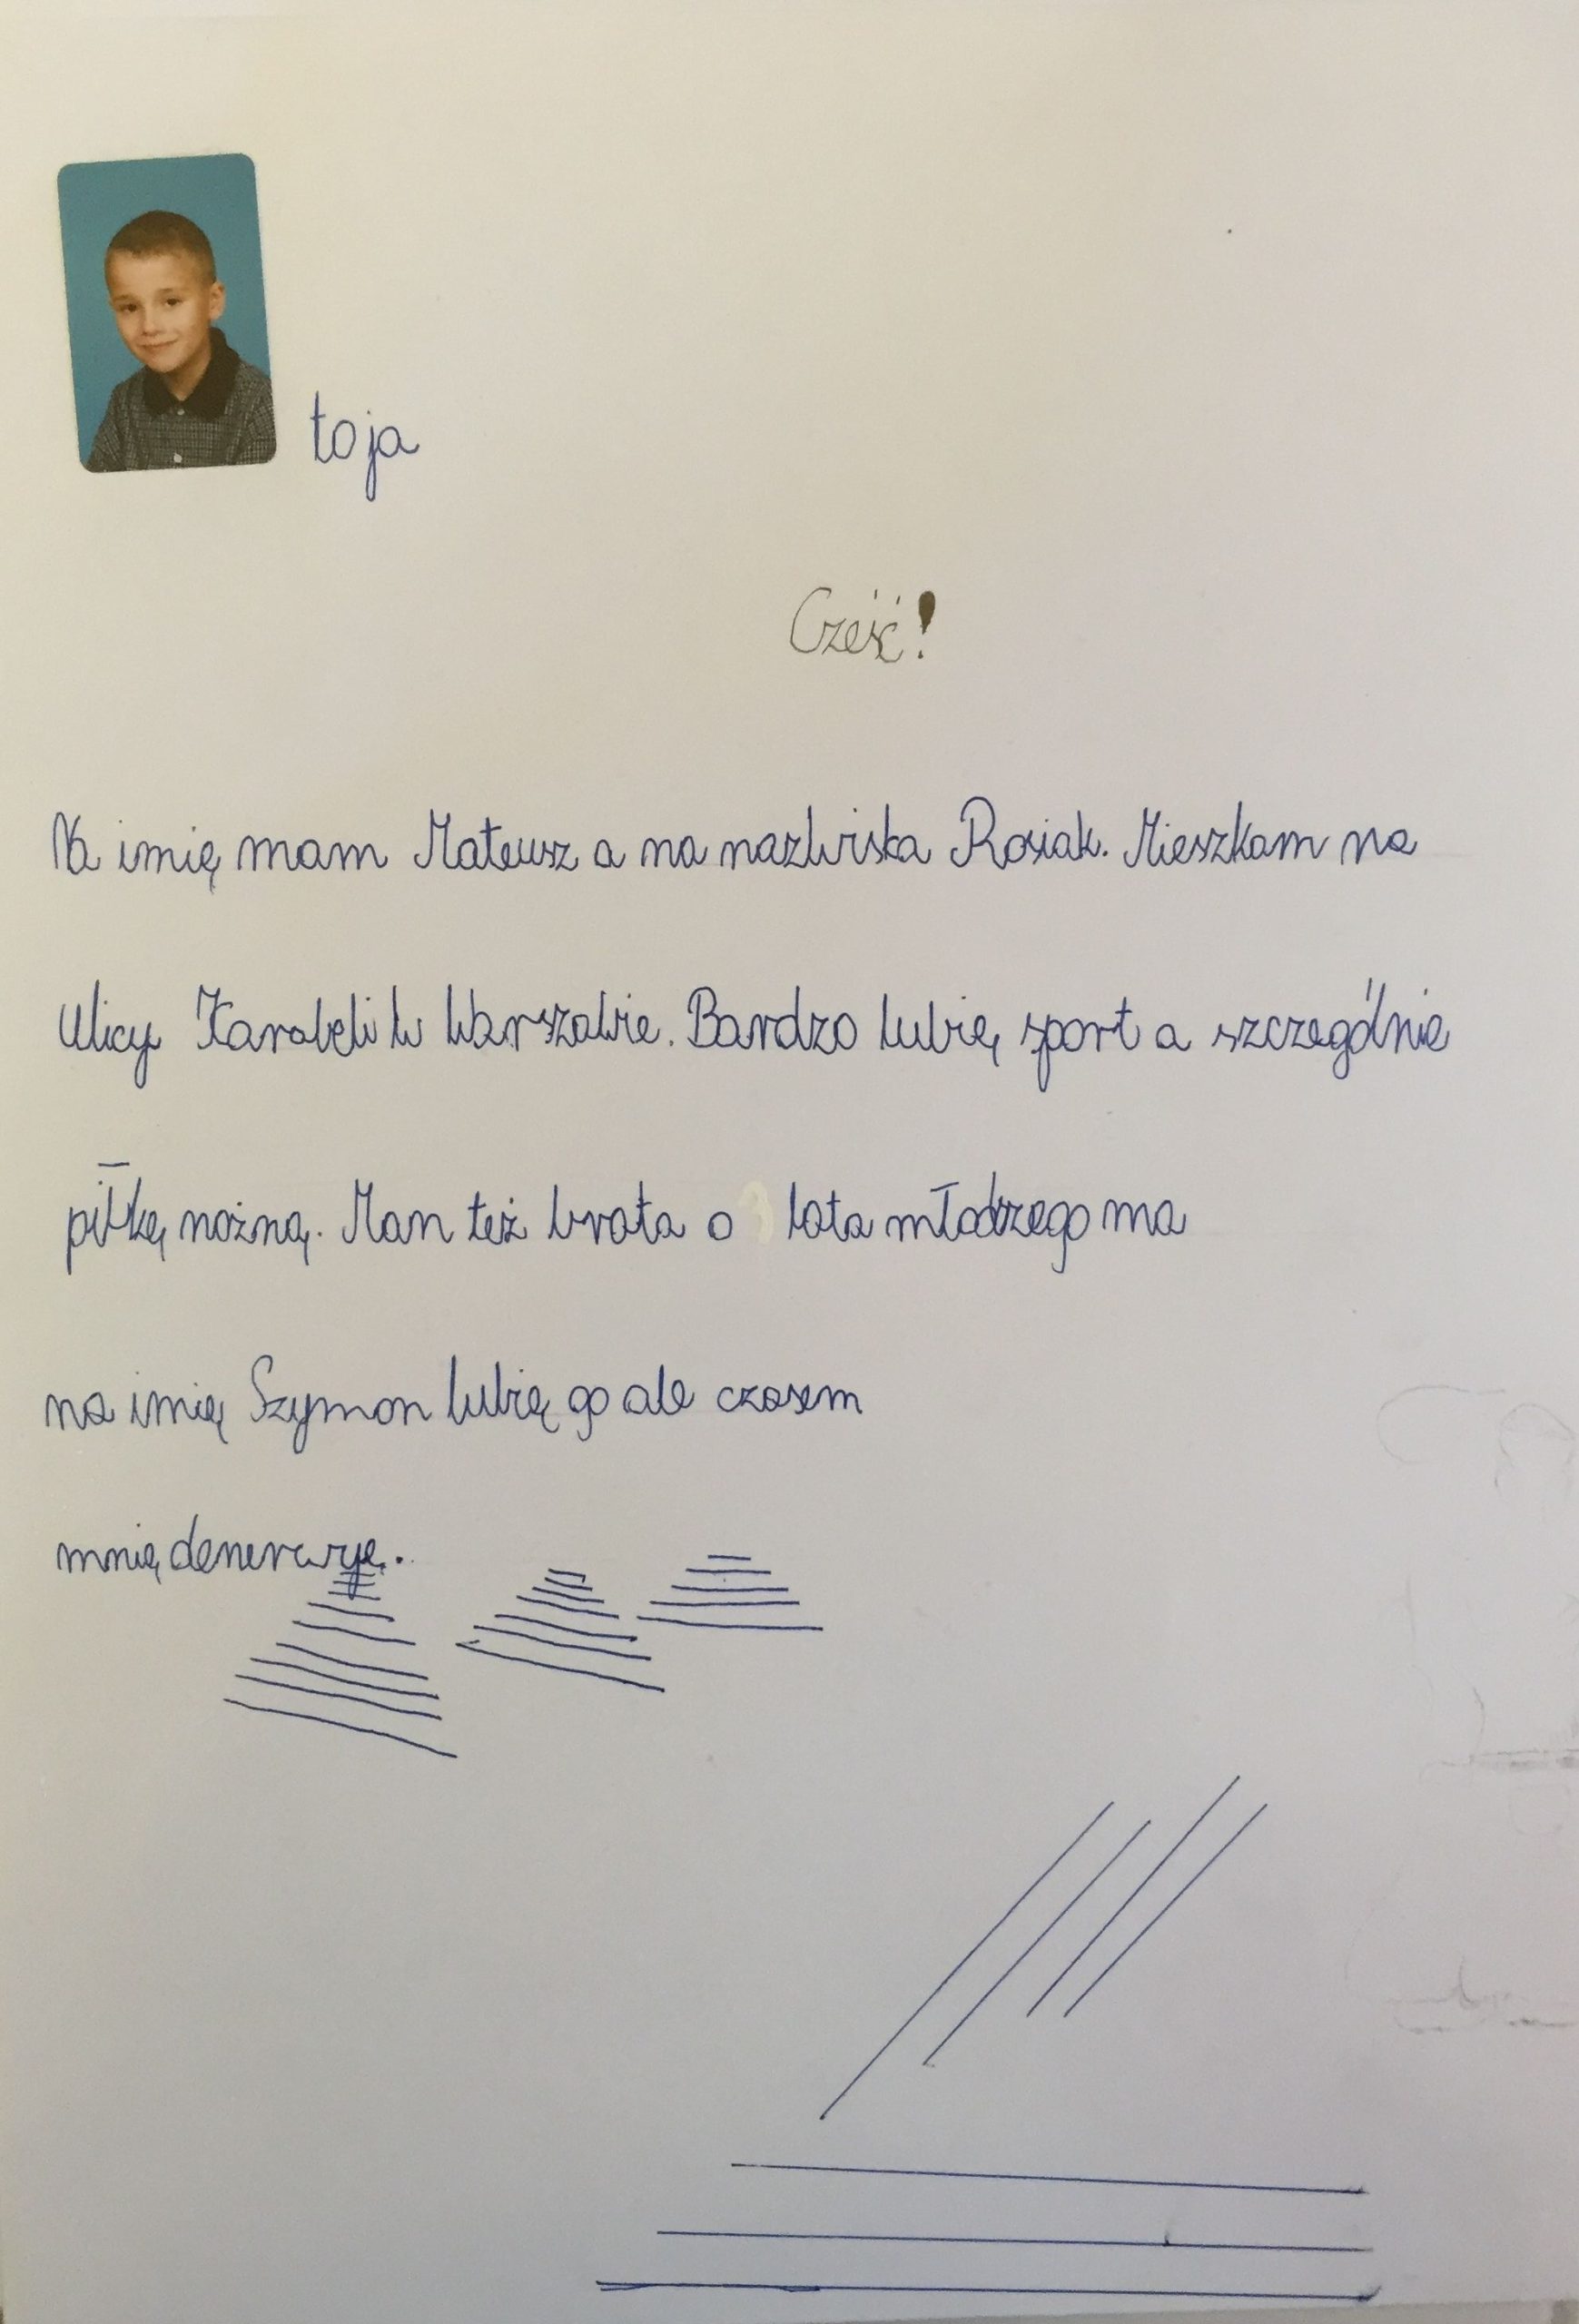 to ja
Cześć!
Na imię mam Mateusz a na nazwiska Rosiak. Mieszkam na
ulicy Karabeli w Warszawie. Bardzo lubię sport a szczególnie
piłkę nożną. Man też brata o lata młodrzego ma
na imię Szymon lubię go ale czasem
mnię denerwuje.